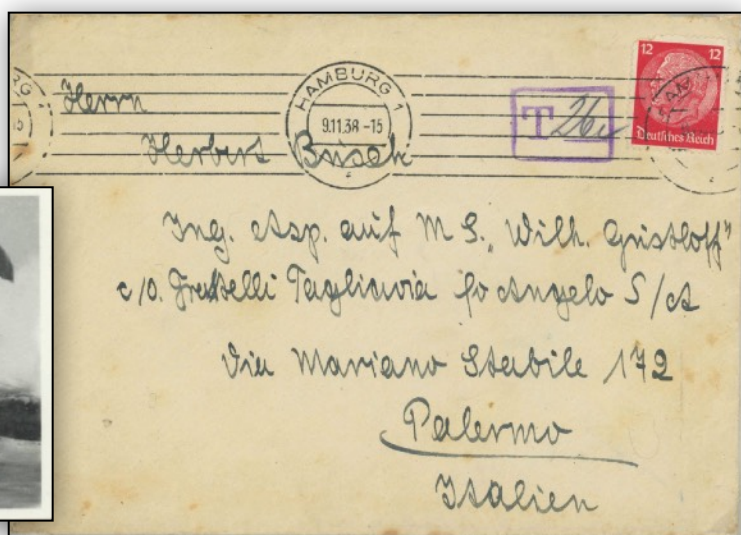 HAMBURG 1
9.11.38 -15
T 26
12 12
Deutsches Reich
Herrn
Herbert Busch
Ing. Asp. auf M S. „Wilh. Gustloff"
c/o. Fratelli Tagliavia fo Angelo S/A
Via Mariano Stabile 172
Palermo
Italien